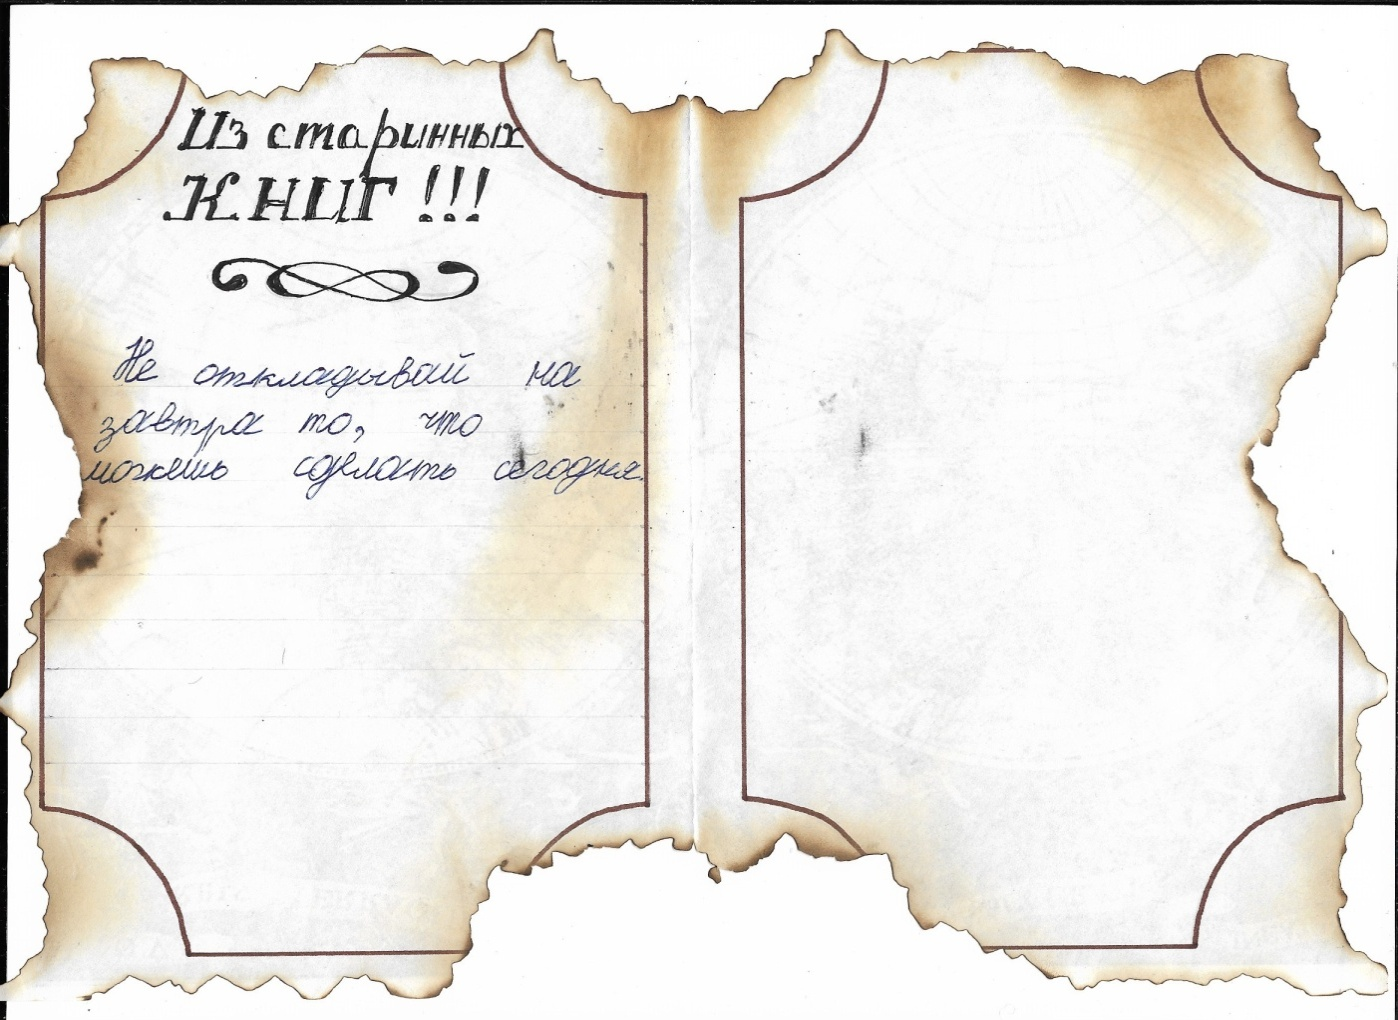 Из старинных
КНИГ !!!
Не откладывай на
завтра то, что
можешь сделать сегодня.